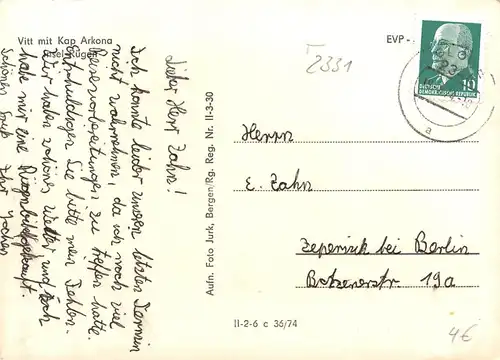 Vitt mit Kap Arkona
Insel Rügen
Lieber Herr Zahn!
Ich konnte leider unseren letzten Termin
nicht wahrnehmen, da ich noch viel
Reisevorbereitungen zu treffen hatte.
Entschuldigen Sie bitte mein Fehlen.
Wir haben schönes Wetter und ich
habe mir eine gekauft.
Schönen Gruß Ihr Jochen
Aufn. Foto Jurk, Bergen/Rg. Reg. Nr. II-3-30
II-2-6 c 36/74
EVP
2331
10
DEUTSCHE
DEMOKRATISCHE REPUBLIK
a
Herrn
E. Zahn
Zepernick bei Berlin
Botzenerstr 19a
4€